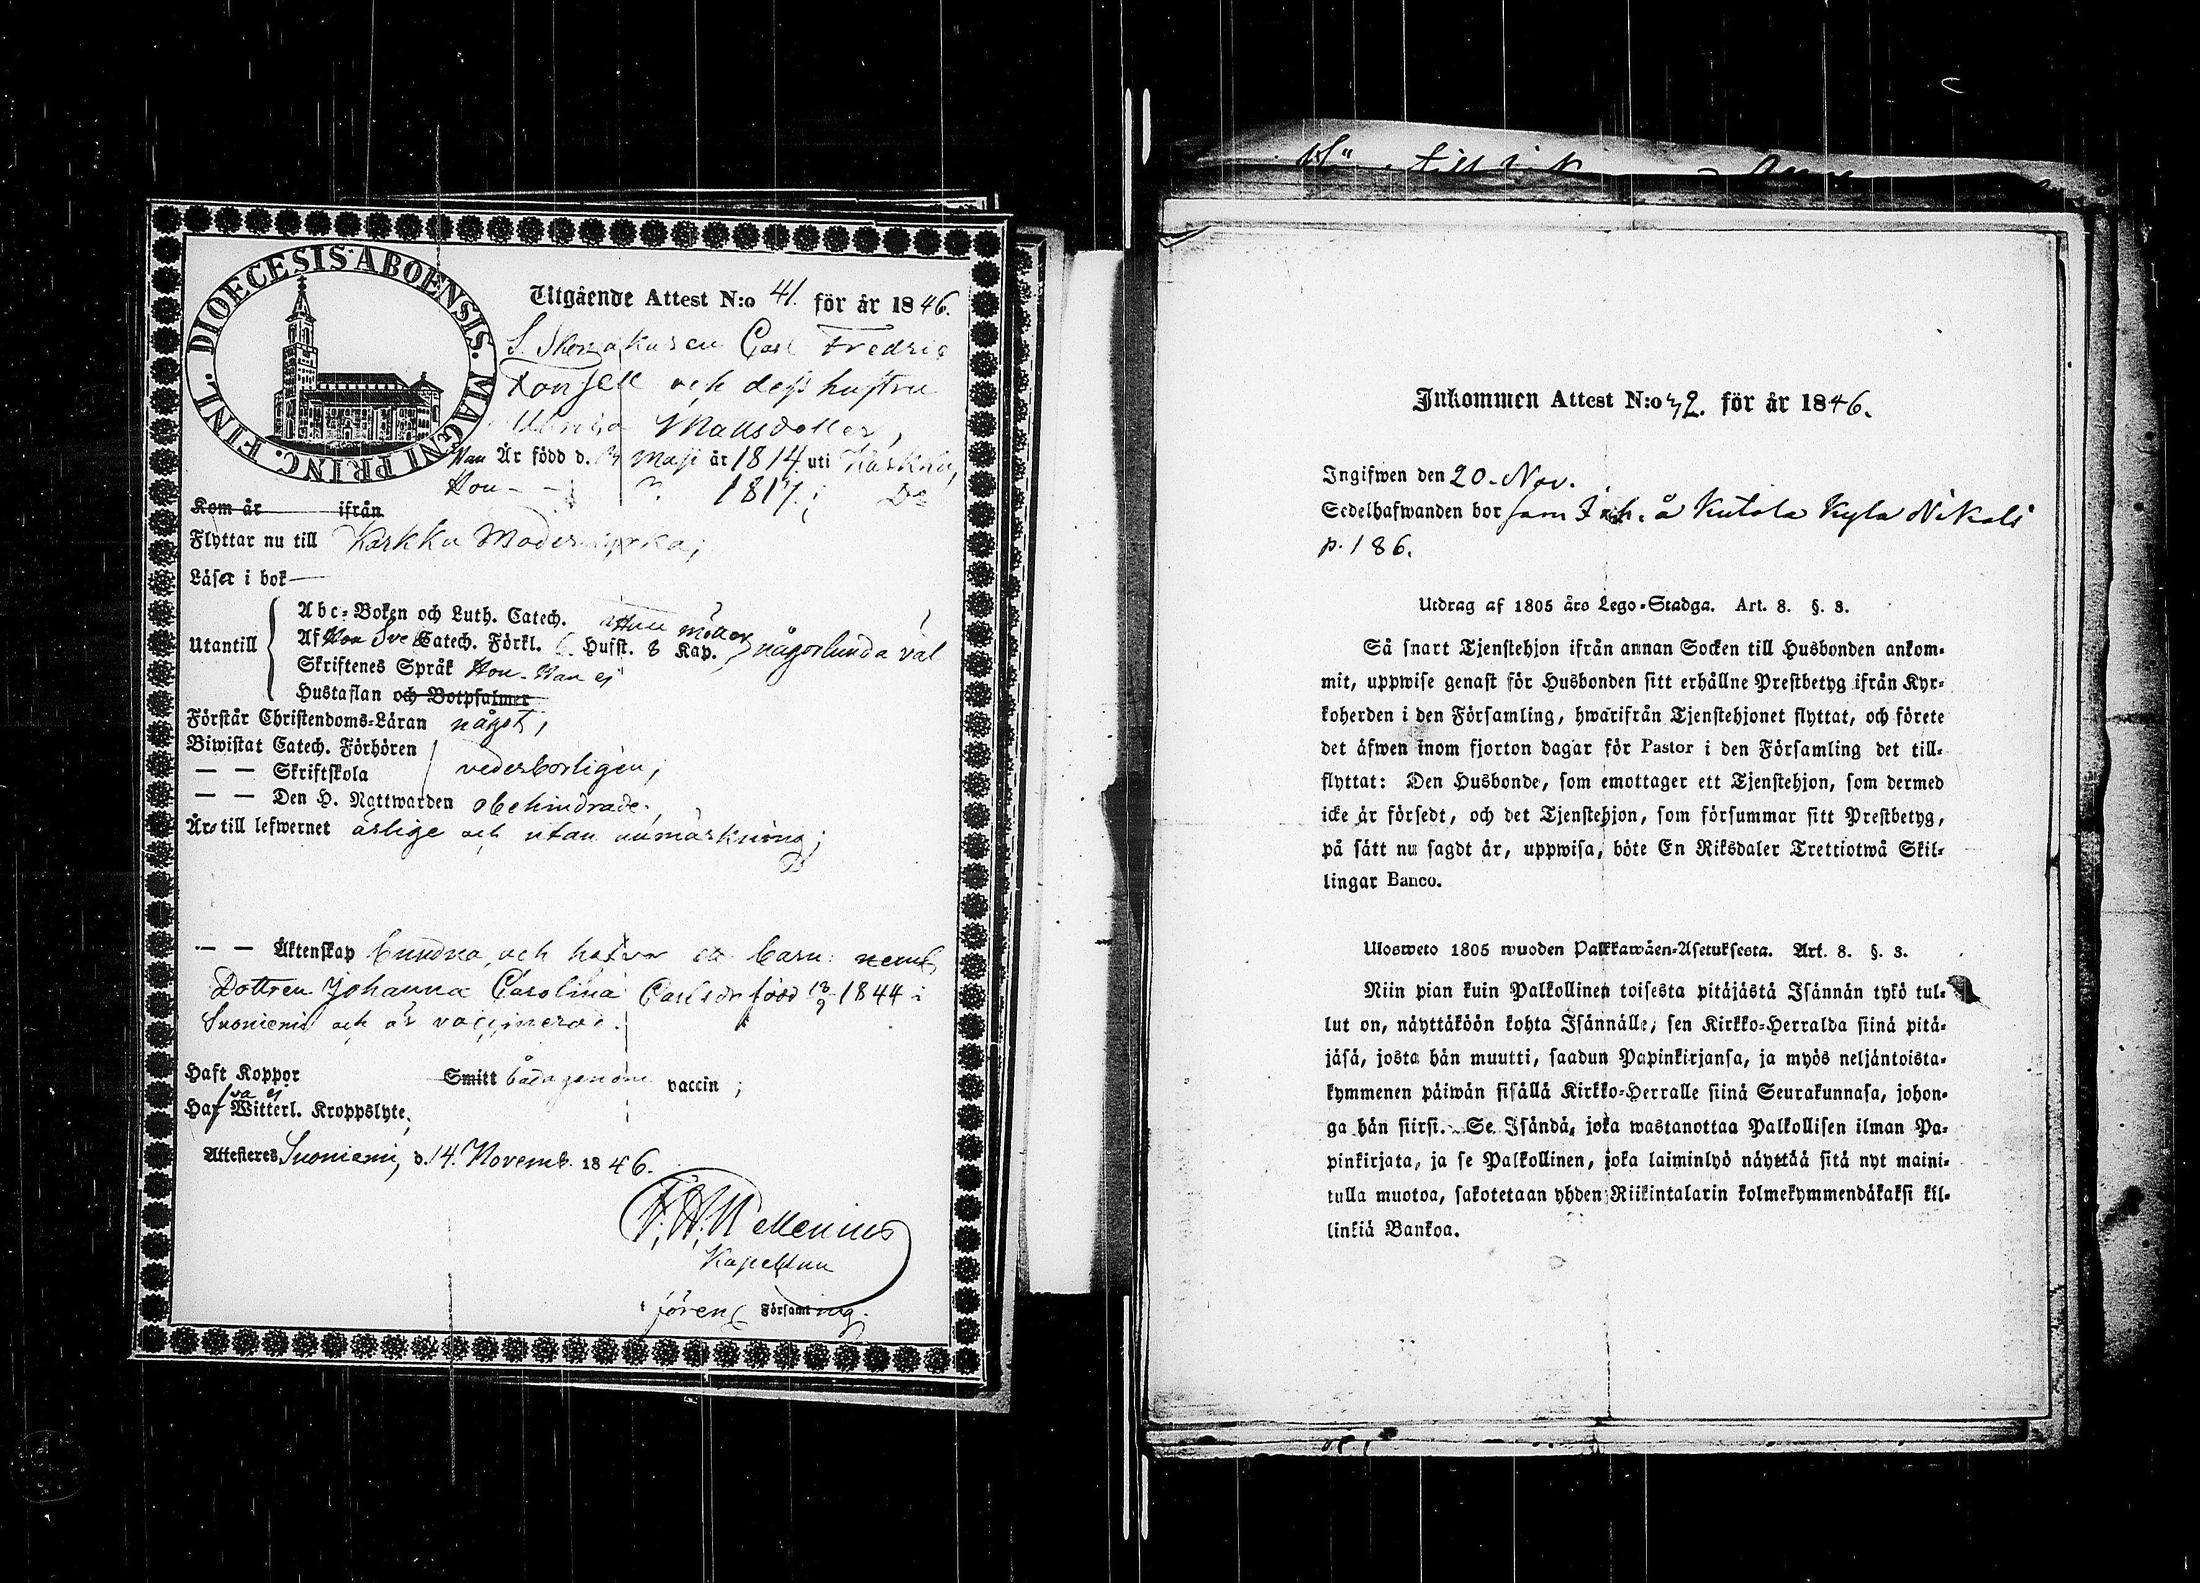 DIOECESIS ABOENSIS. MAGNI PRINC. FINL.
Utgående Attest N:o 41. för år 1846.
S. Skomakaren Carl Fredric
Fonsell och dess hustru
Ulrica Matsdotter,
Han Är född d. Maji år 1814 uti Karkku,
Hon - - 1817. i Do
Kom år ifrån
Flyttar nu till Karkku Moderkyrka;
Läser i bok
Utantill
Abc-Boken och Luth. Catech.
Af Hon Sve Catech. Förkl. 6. Hufst. 8 Kap. någorlunda väl
Skriftenes Språk Hon. Han ej
Hustaflan och Botpsalmer
Förstår Christendoms-Läran något,
Biwistat Catech. Förhören
— — Skriftskola vederborligen,
— — Den H. Nattwarden obehindrade.
Är till lefwernet ärlige och utan anmärkning;
— — Äktenskap bundna, och hafva ett barn: neml
Dottren Johanna Carolina Carlsdr född 18/9 1844 i
Suoniemi och är vaccinerad.
Haft Koppor Smitt båda genom vaccin;
Haf va ej Witterl. Kroppslyte.
Attesteras Suoniemi, d. 14. Novemb. 1846.
F. H. Mellenius
Kapellan
i fören Församling.
Inkommen Attest N:o 32. för år 1846.
Ingifwen den 20. Nov.
Sedelhafwanden bor som Inh. å Kutala Kyla Nikali
p. 186.
Utdrag af 1805 års Lego-Stadga. Art. 8. §. 3.
Så snart Tjenstehjon ifrån annan Socken till Husbonden ankom-
mit, uppwise genast för Husbonden sitt erhållne Prestbetyg ifrån Kyr-
koherden i den Församling, hwarifrån Tjenstehjonet flyttat, och förete
det äfwen inom fjorton dagar för Pastor i den Församling det till-
flyttat: Den Husbonde, som emottager ett Tjenstehjon, som dermed
icke är försedt, och det Tjenstehjon, som försummar sitt Prestbetyg,
på sätt nu sagdt är, uppwisa, böte En Riksdaler Trettiotwå Skil-
lingar Banco.
Ulosweto 1805 wuoden Palkkawäen-Asetuksesta. Art. 8. §. 3.
Niin pian kuin Palkollinen toisesta pitäjästä Isännän tykö tul-
lut on, näyttäköön kohta Isännälle, sen Kirkko-Herralda siinä pitä-
jäsä, josta hän muutti, saadun Papinkirjansa, ja myös neljäntoista-
kymmenen päiwän sisällä Kirkko-Herralle siinä Seurakunnasa, johon-
ga hän siirsi. Se Isändä, joka wastanottaa Palkollisen ilman Pa-
pinkirjata, ja se Palkollinen, joka laiminlyö näyttää sitä nyt maini-
tulla muotoa, sakotetaan yhden Riikintalarin kolmekymmendäkaksi kil-
linkiä Bankoa.